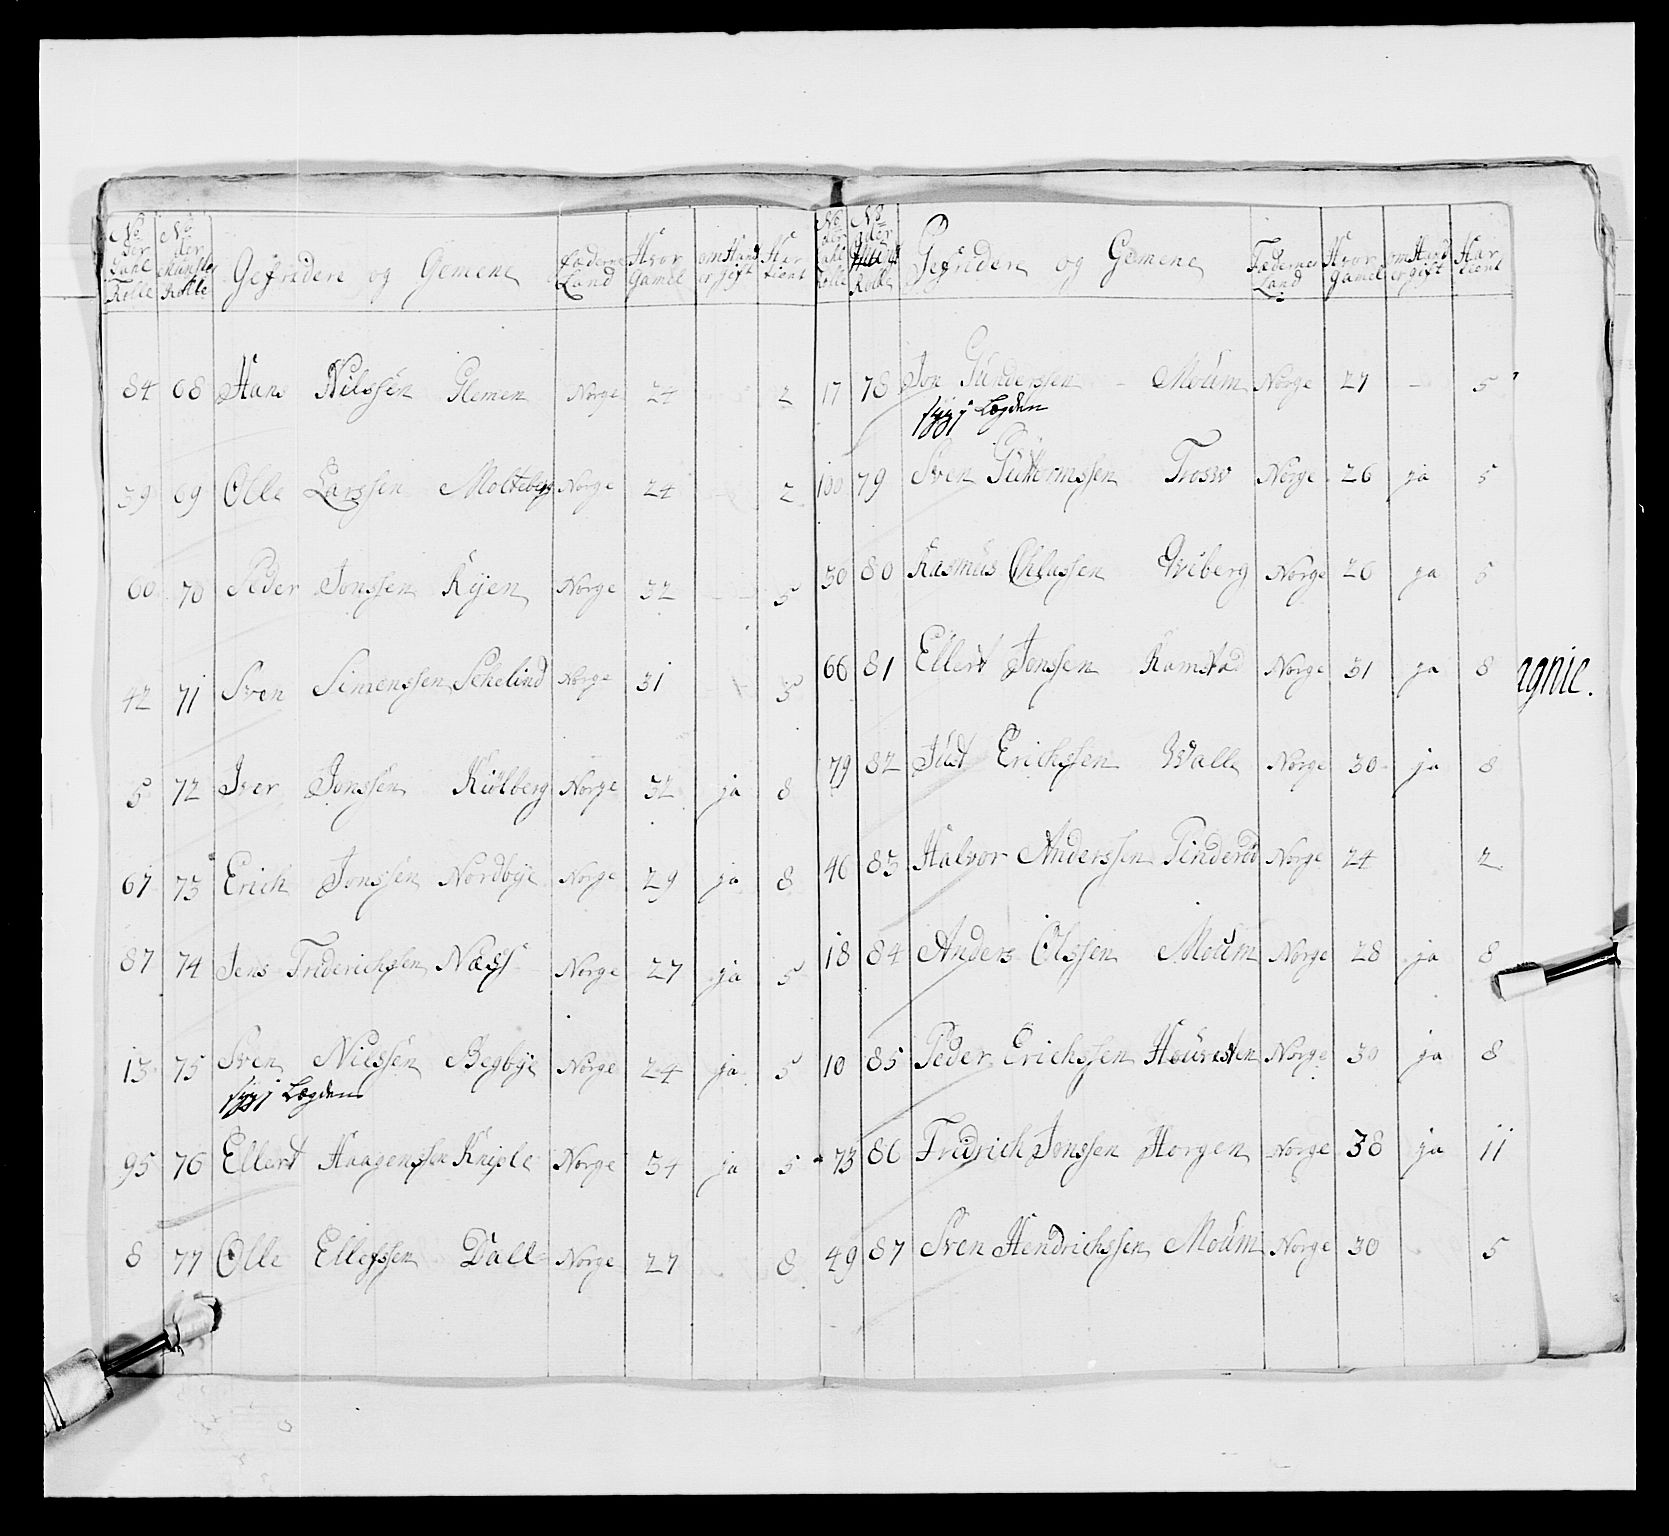 No der Tahl Rolle | No der Münster Rolle | Gefridere og Gemene | Fæderne Land | Hvor Gamel | om Hand er gift | Har tient
84 68 Hans Nilssen Glemen Norge 24 2
39 69 Olle Larssen Molteberg Norge 24 2
60 70 Peder Jonssen Kijen Norge 32 5
42 71 Sven Simenssen Schelind Norge 31 5
5 72 Iver Jonssen Kiølberg Norge 32 ja 8
67 73 Erich Jonssen Nordbÿe Norge 29 ja 8
87 74 Jens Friderichsen Næss Norge 27 ja 5
13 75 Sven Nilssen Begbÿe Norge 24 ja 5
syg i Lægden
95 76 Ellert Haagenssen Kniple Norge 34 ja 5
8 77 Olle Ellefssen Dall Norge 27 8
No der Tahl Rolle | No der Rolle | Gefridere og Gemene | Fæderne Land | Hvor Gamel | om Hand er gift | Har tient
17 78 Jon Gunderssen - Moum Norge 27 - 5
syg i Lægden
100 79 Sven Guttormssen Trosw Norge 26 ja 5
50 80 Rasmus Chlassen Wiberg Norge 26 ja 5
66 81 Ellert Jonssen Ramstad Norge 31 ja 8
79 82 Just Erichssen Walle Norge 30 ja 8
46 83 Halvor Anderssen Norge 24 2
18 84 Anders Olssen Moum Norge 28 ja 8
10 85 Peder Erichssen Houresten Norge 30 ja 8
73 86 Fridrich Jonssen Horgen Norge 38 ja 11
49 87 Sven Hendrichssen Moum Norge 30 5
agnie.